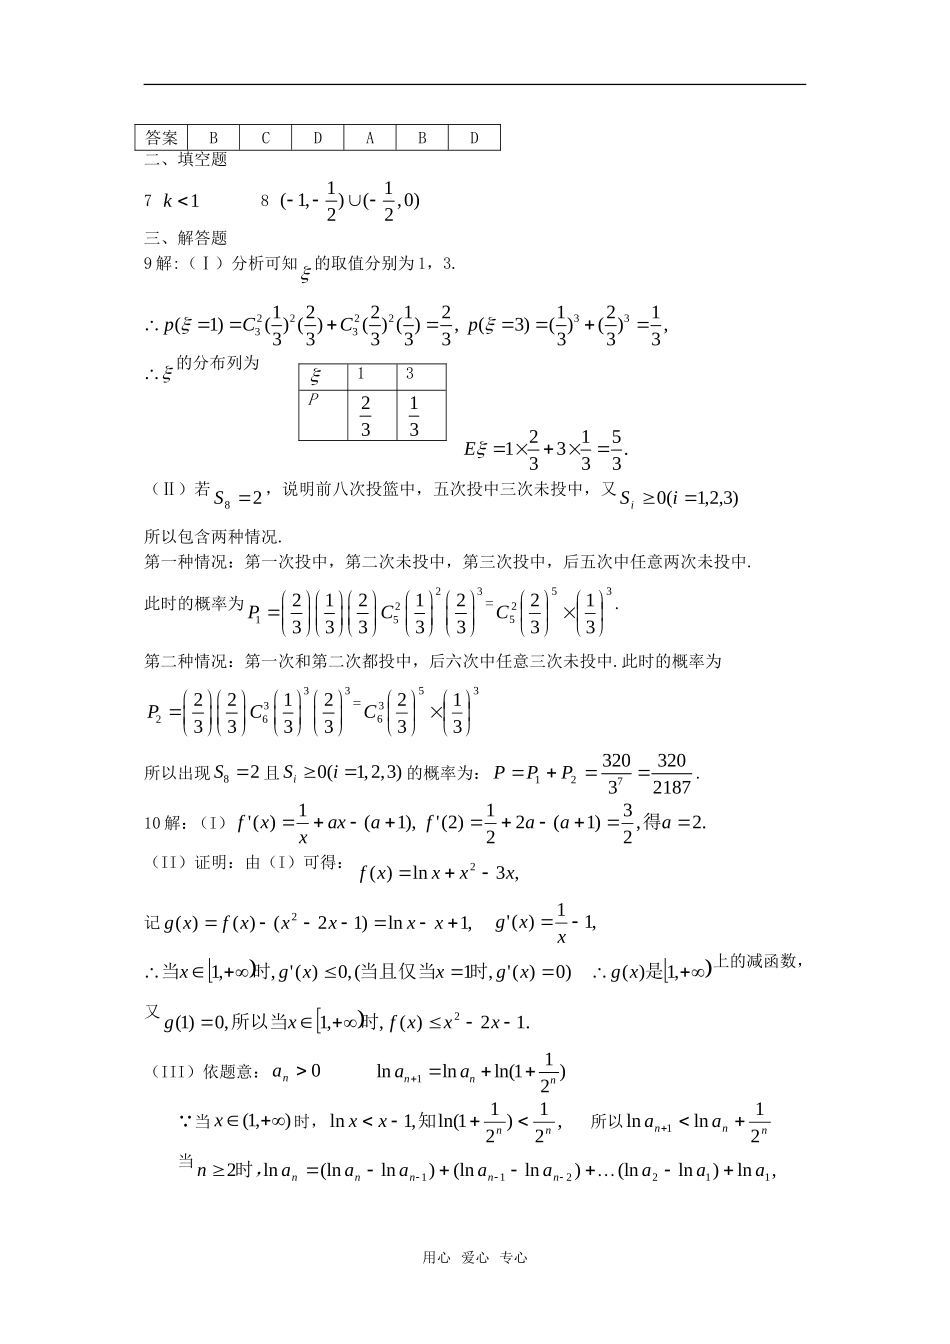 答案 B C D A B D
二、填空题
7 k<1 8 (-1,-1/2)∪(-1/2,0)
三、解答题
9解:(Ⅰ)分析可知ξ的取值分别为1，3.
∴p(ξ=1)=C_3^2(1/3)^2(2/3)+C_3^2(2/3)^2(1/3)=2/3, p(ξ=3)=(1/3)^3+(2/3)^3=1/3,
∴ξ的分布列为
ξ 1 3
P 2/3 1/3
Eξ=1×2/3+3×1/3=5/3.
(Ⅱ)若S_8=2，说明前八次投篮中，五次投中三次未投中，又S_i≥0(i=1,2,3)
所以包含两种情况.
第一种情况：第一次投中，第二次未投中，第三次投中，后五次中任意两次未投中.
此时的概率为P_1=(2/3)(1/3)(2/3)C_5^2(1/3)^2(2/3)^3=C_5^2(2/3)^5×(1/3)^3.
第二种情况：第一次和第二次都投中，后六次中任意三次未投中.此时的概率为
P_2=(2/3)(2/3)C_6^3(1/3)^3(2/3)^3=C_6^3(2/3)^5×(1/3)^3
所以出现S_8=2且S_i≥0(i=1,2,3)的概率为：P=P_1+P_2=320/3^7=320/2187.
10解：(I) f'(x)=1/x+ax-(a+1), f'(2)=1/2+2a-(a+1)=3/2,得a=2.
(II)证明：由(I)可得：f(x)=ln x+x^2-3x,
记g(x)=f(x)-(x^2-2x-1)=ln x-x+1, g'(x)=1/x-1,
∴当x∈[1,+∞)时,g'(x)≤0,(当且仅当x=1时,g'(x)=0) ∴g(x)是[1,+∞)上的减函数，
又g(1)=0,所以当x∈[1,+∞)时,f(x)≤x^2-2x-1.
(III)依题意：a_n>0 ln a_{n+1}=ln a_n+ln(1+1/2^n)
∵当x∈(1,+∞)时，ln x<x-1,知ln(1+1/2^n)<1/2^n, 所以ln a_{n+1}<ln a_n+1/2^n
当n≥2时，ln a_n=(ln a_n-ln a_{n-1})+(ln a_{n-1}-ln a_{n-2})+…+(ln a_2-ln a_1)+ln a_1,
用心 爱心 专心